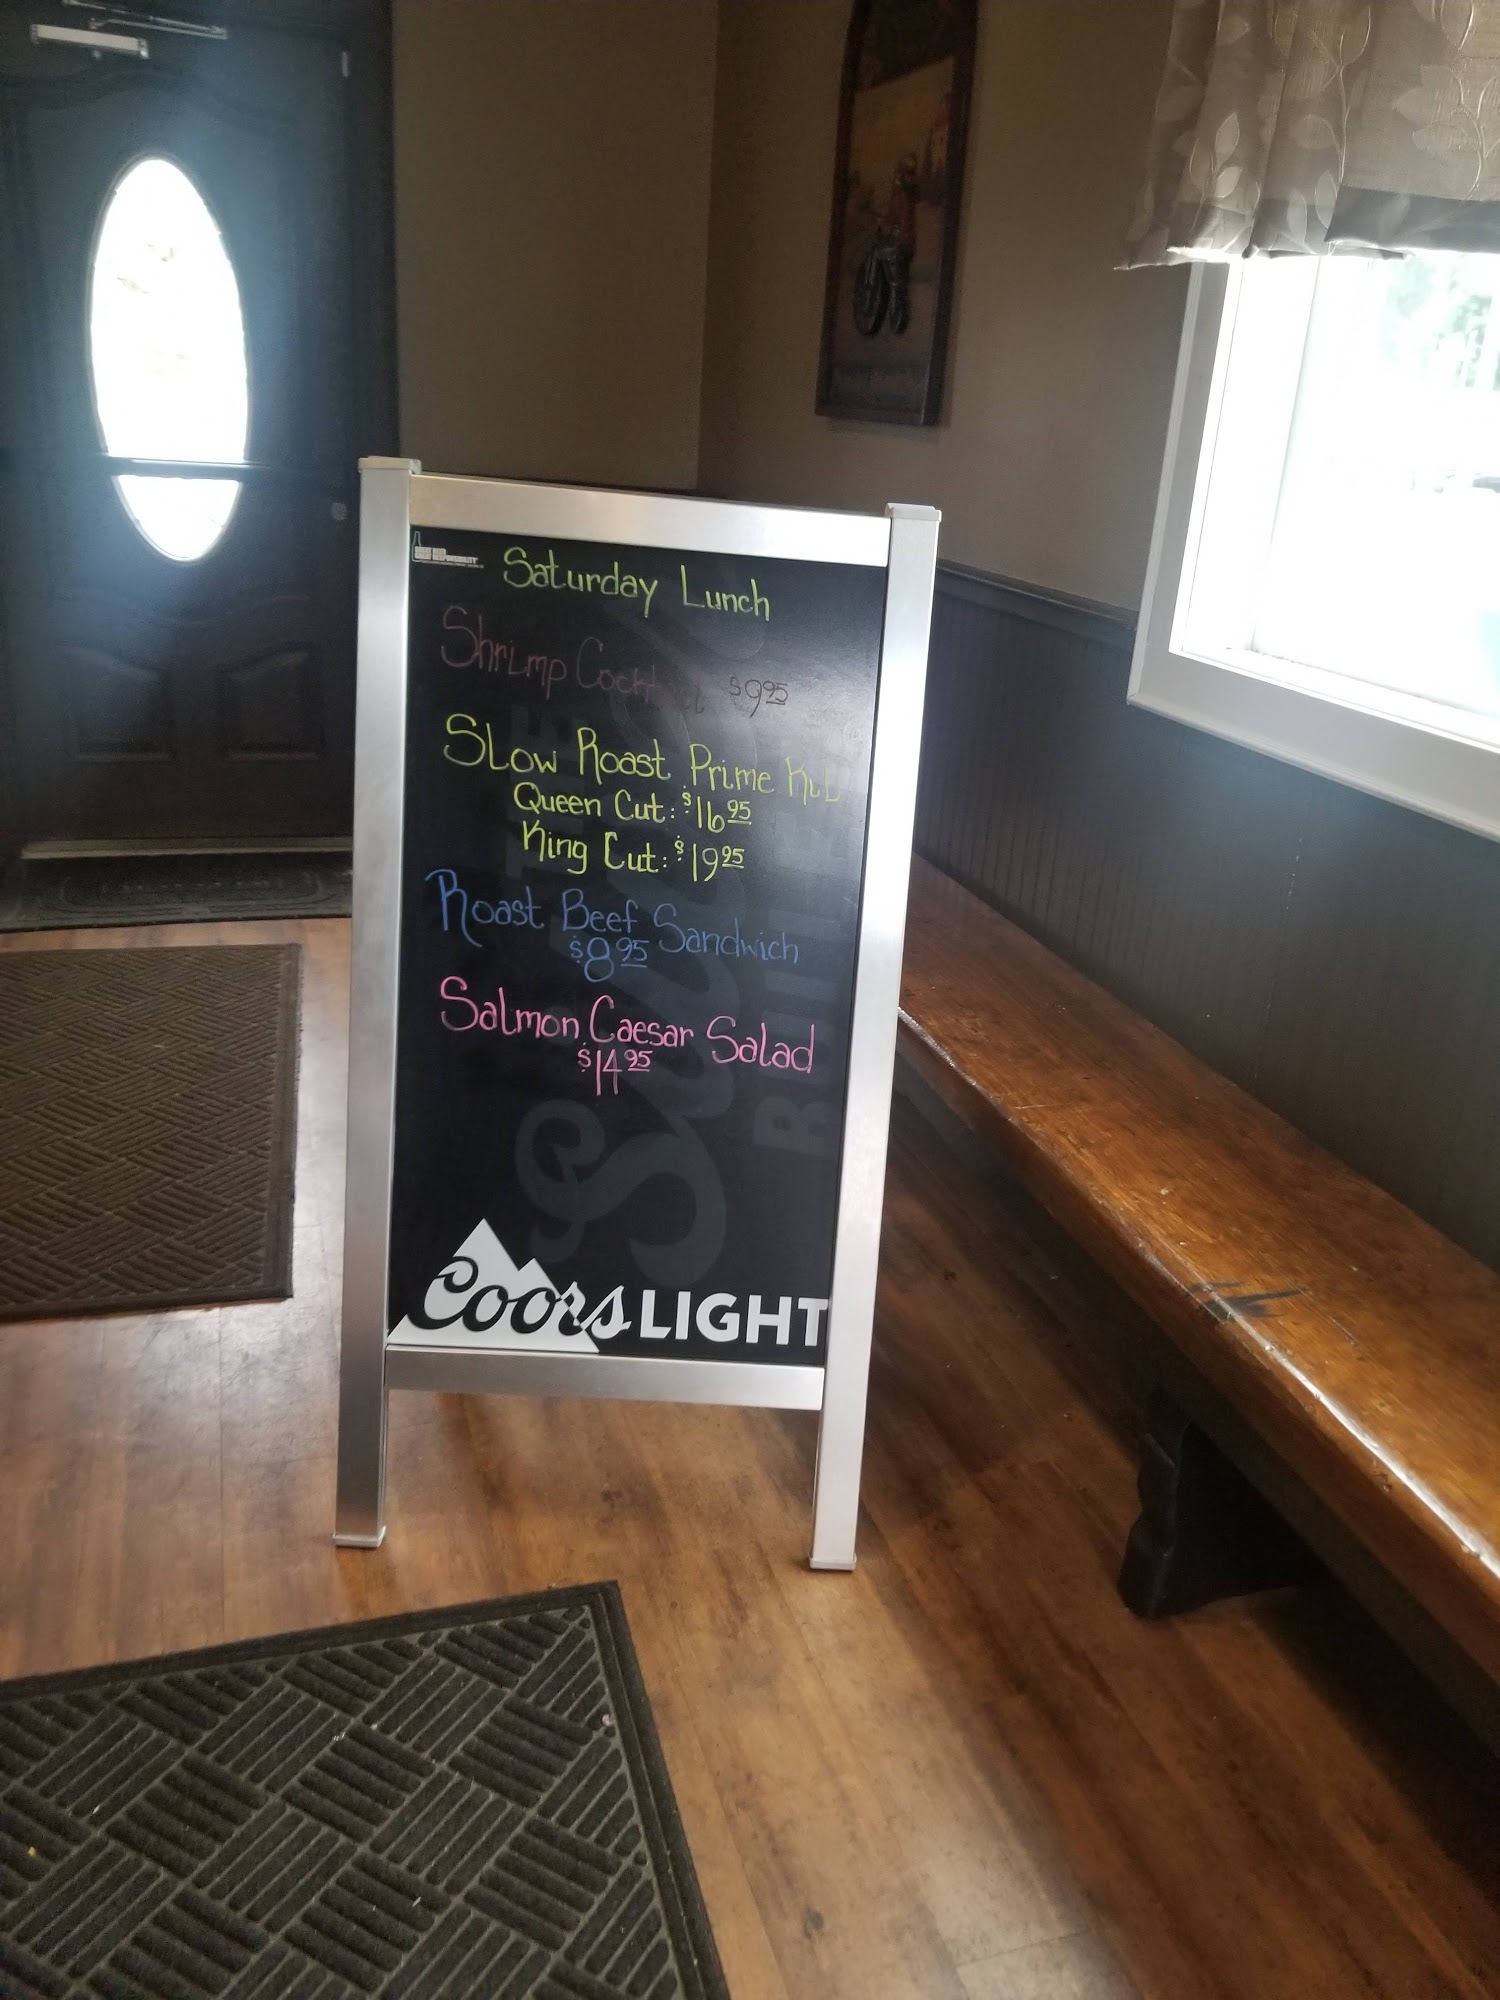 GREAT BEER
GREAT RESPONSIBILITY
Saturday Lunch
Shrimp Cocktail $9.95
Slow Roast Prime Rib
Queen Cut: $16.95
King Cut: $19.95
Roast Beef Sandwich
$8.95
Salmon Caesar Salad
$14.95
Coors LIGHT